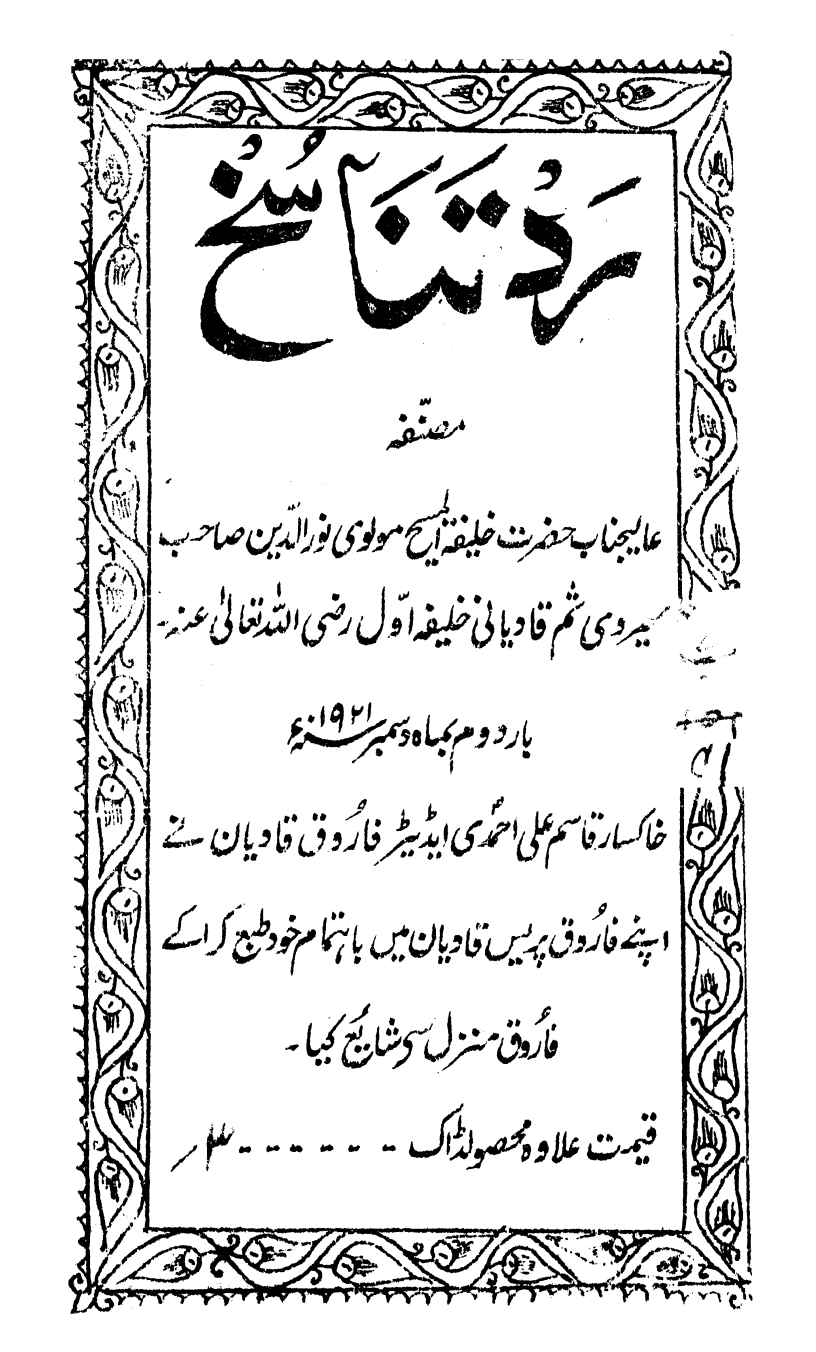 رَدِّ تَنَاسُخْ
مصنّفہ
عالیجناب حضرت خلیفۃ المسیح مولوی نورالدّین صاحب
بھیروی ثم قادیانی خلیفہ اوّل رضی اللہ تعالیٰ عنہ۔
بار دوم بماہ دسمبر ۱۹۲۱ سنہء
خاکسار قاسم علی احمدی ایڈیٹر فارُوق قادیان نے
اپنے فارُوق پریس قادیان میں باہتمام خود طبع کرا کے
فارُوق منزل سی شایٔع کیا۔
قیمت علاوہ محصولڈاک - - - - - - - ۳؍